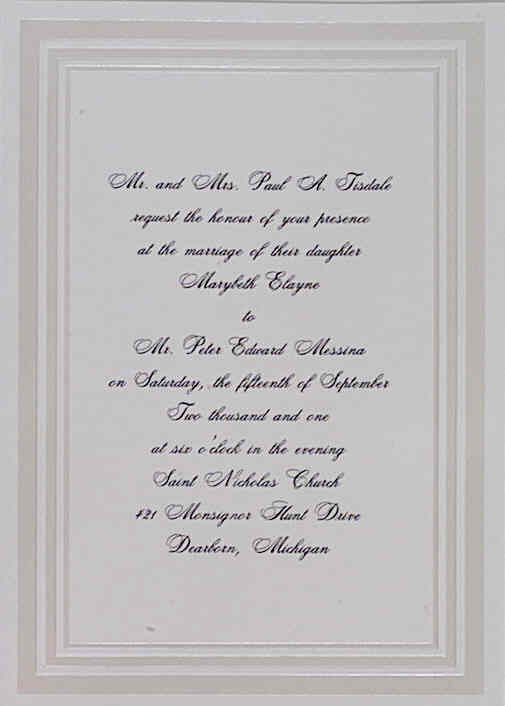 Mr. and Mrs. Paul A. Tisdale
request the honour of your presence
at the marriage of their daughter
Marybeth Elayne
to
Mr. Peter Edward Messina
on Saturday, the fifteenth of September
Two thousand and one
at six o'clock in the evening
Saint Nicholas Church
421 Monsignor Hunt Drive
Dearborn, Michigan